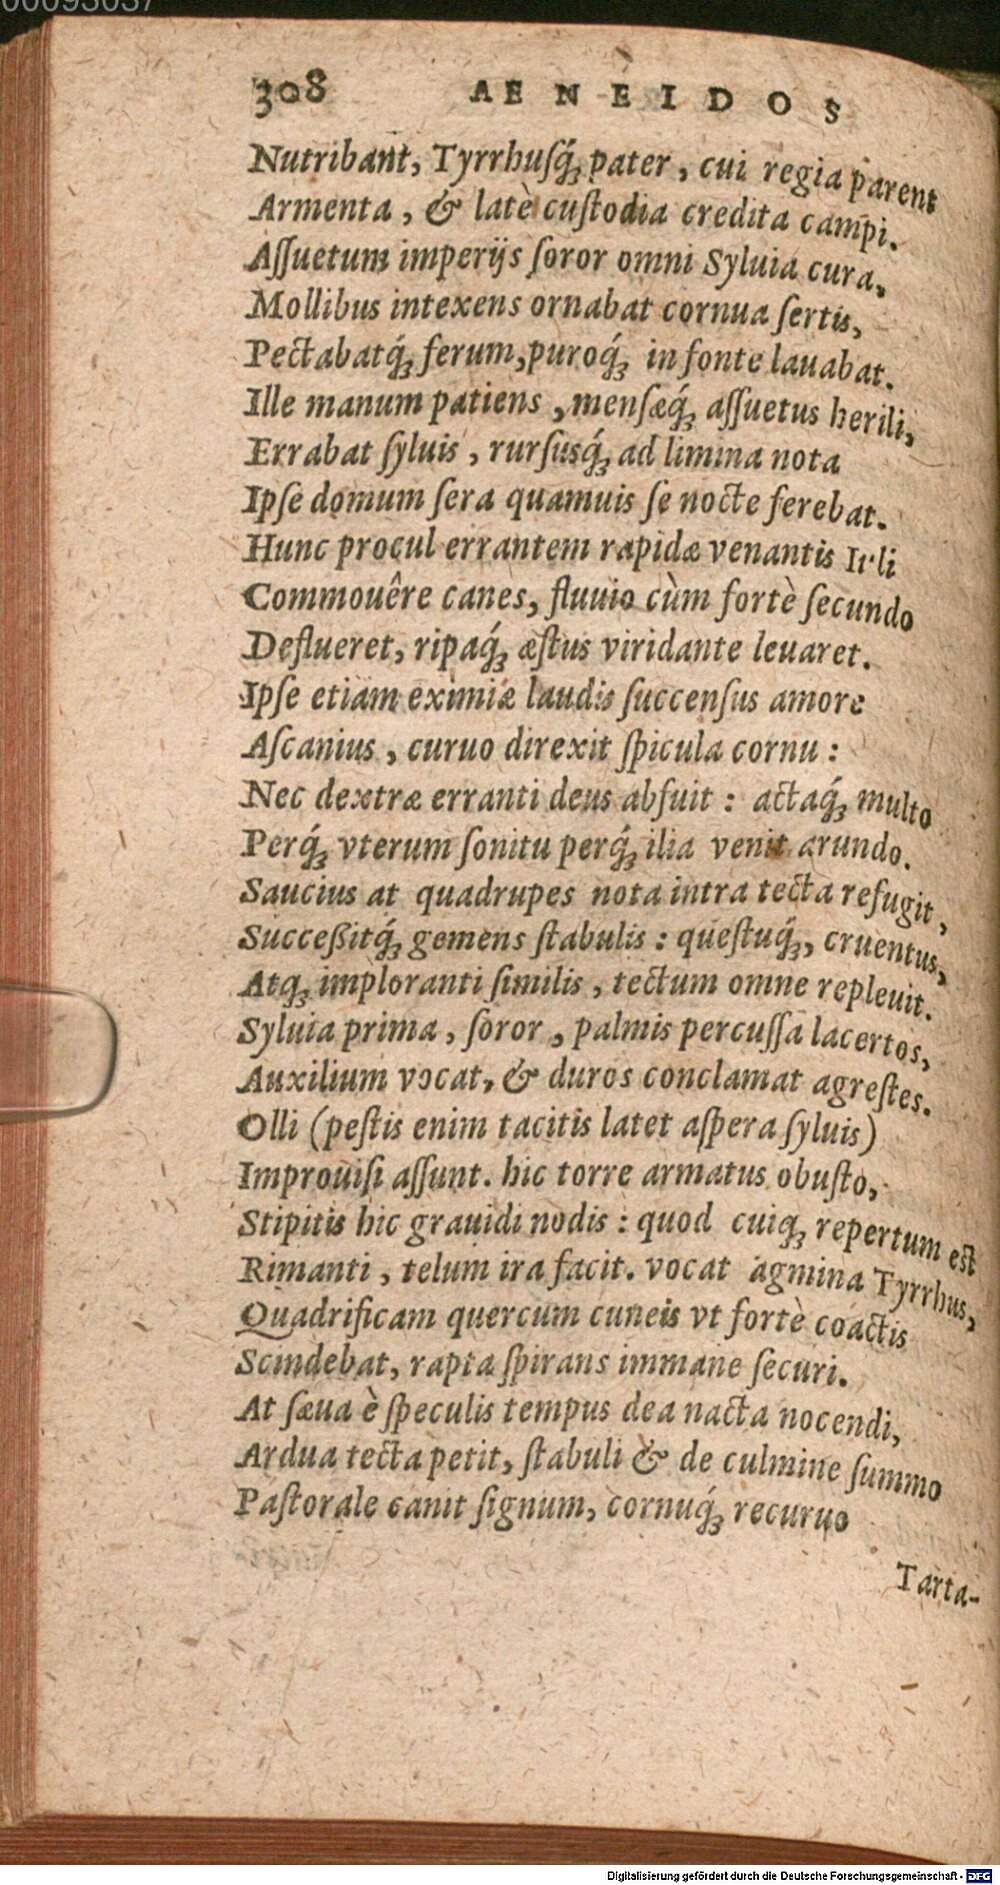 00093037
308 AENEIDOS
Nutribant, Tyrrhuſq́ꝫ pater, cui regia parent
Armenta, & latè cuſtodia credita campi.
Aſſuetum imperijs ſoror omni Syluia cura,
Mollibus intexens ornabat cornua ſertis,
Pectabatq́ꝫ ferum, puroq́ꝫ in fonte lauabat.
Ille manum patiens, menſæq́ꝫ aſſuetus herili,
Errabat ſyluis, rurſusq́ꝫ ad limina nota
Ipſe domum ſera quamuis ſe nocte ferebat.
Hunc procul errantem rapidæ venantis Iuli
Commouêre canes, fluuio cùm fortè ſecundo
Deflueret, ripaq́ꝫ æſtus viridante leuaret.
Ipſe etiam eximiæ laudis ſuccenſus amore
Aſcanius, curuo direxit ſpicula cornu:
Nec dextræ erranti deus abfuit: actaq́ꝫ multo
Perq́ꝫ vterum ſonitu perq́ꝫ ilia venit arundo.
Saucius at quadrupes nota intra tecta refugit,
Succeßitq́ꝫ gemens ſtabulis: queſtuq́ꝫ, cruentus,
Atqꝫ imploranti ſimilis, tectum omne repleuit.
Syluia prima, ſoror, palmis percuſſa lacertos,
Auxilium vocat, & duros conclamat agreſtes.
Olli (peſtis enim tacitis latet aſpera ſyluis)
Improuiſi aſſunt. hic torre armatus obuſto,
Stipitis hic grauidi nodis: quod cuiqꝫ repertum eſt
Rimanti, telum ira facit. vocat agmina Tyrrhus,
Quadrificam quercum cuneis vt fortè coactis
Scindebat, rapta ſpirans immane ſecuri.
At ſæua è ſpeculis tempus dea nacta nocendi,
Ardua tecta petit, ſtabuli & de culmine ſummo
Paſtorale canit ſignum, cornuq́ꝫ recuruo
Tarta-
Digitalisierung gefördert durch die Deutsche Forschungsgemeinschaft - DFG